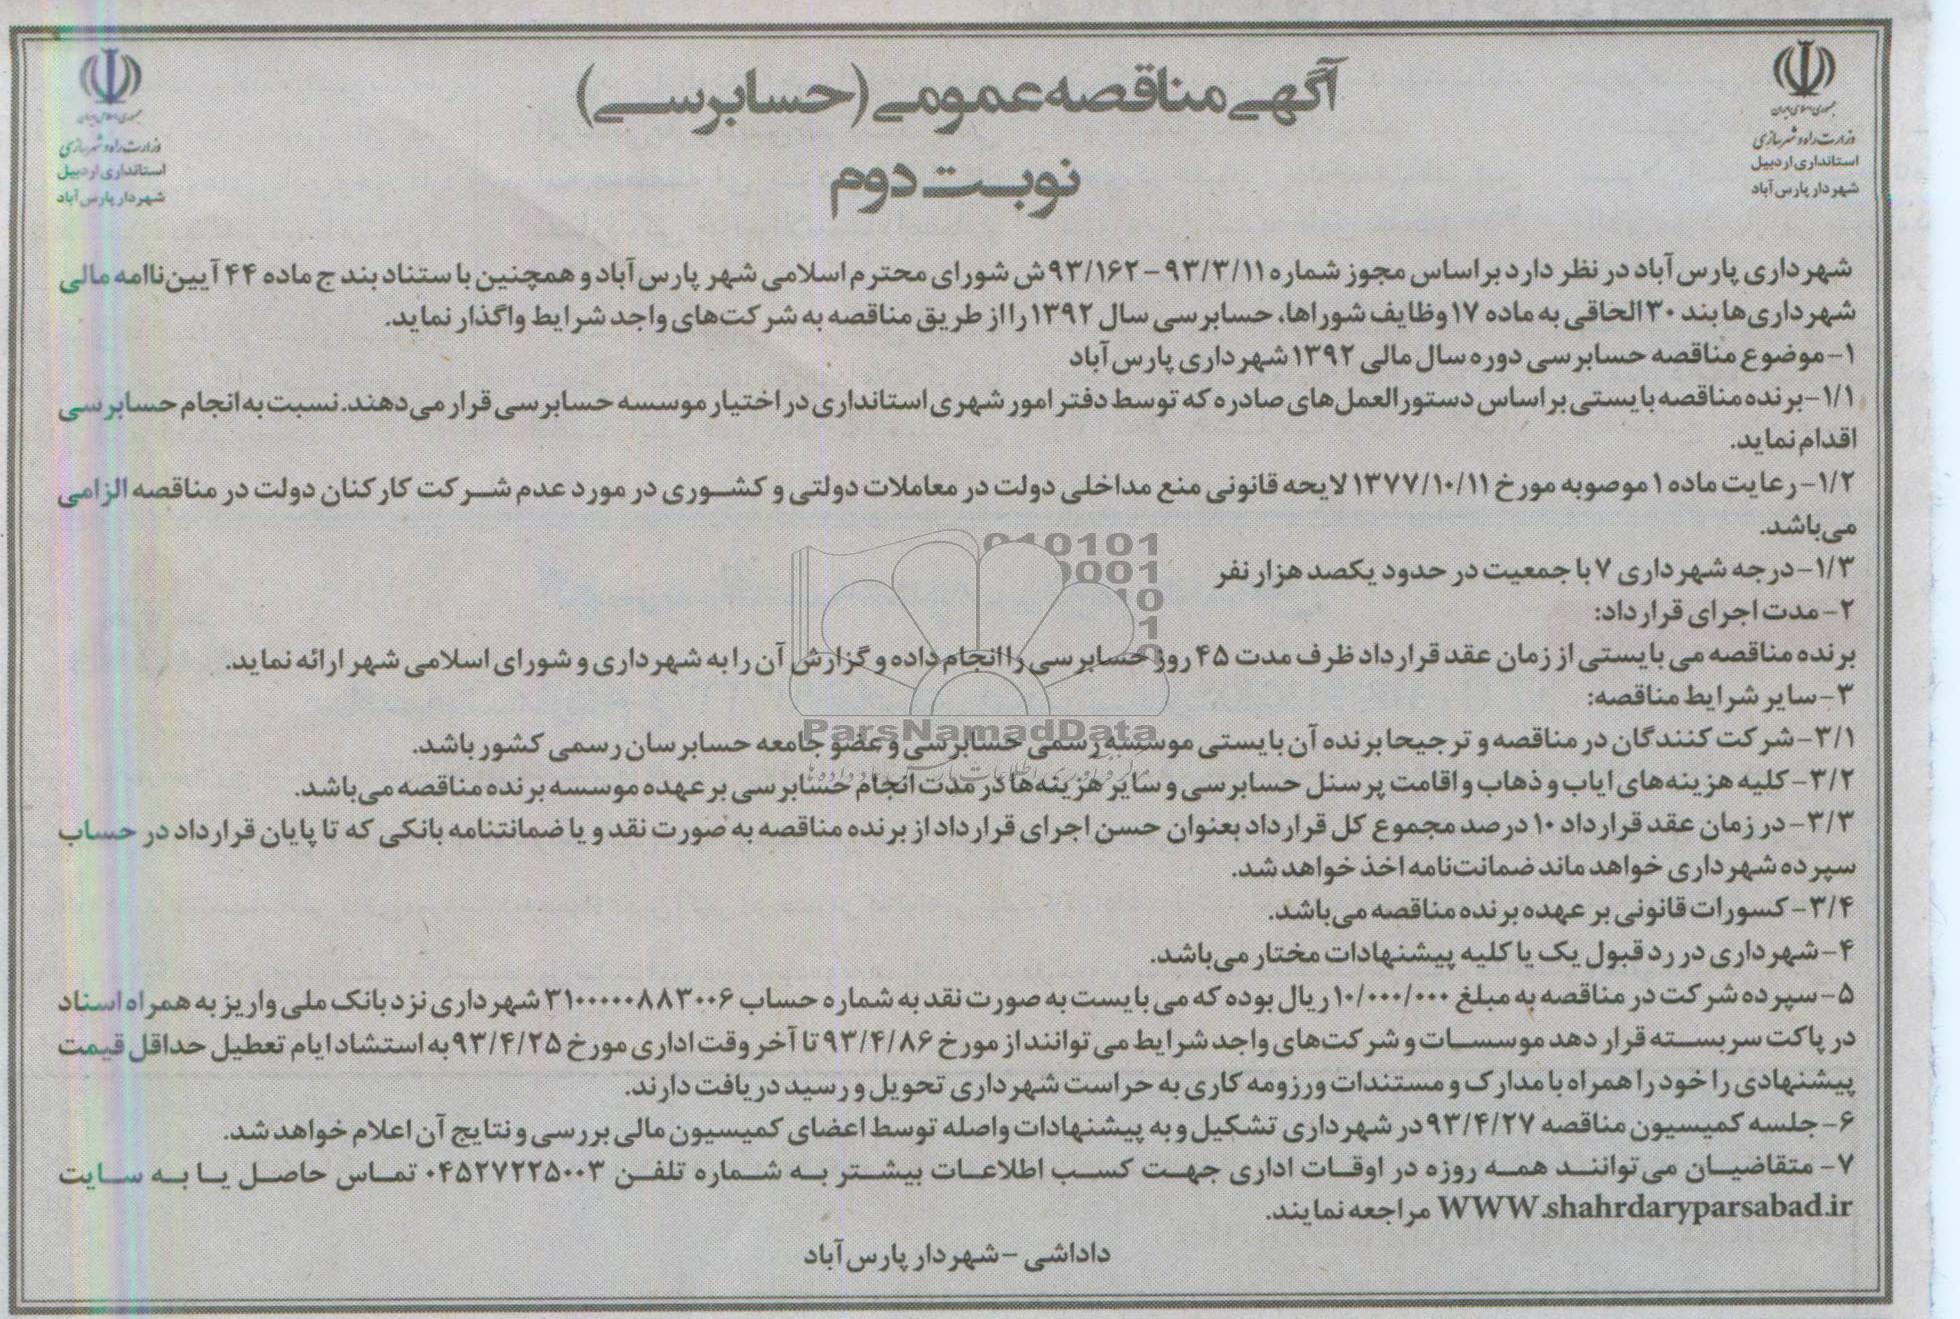 جمهوری اسلامی ایران
وزارت راه و شهرسازی
استانداری اردبیل
شهردار پارس آباد
آگهی مناقصه عمومی (حسابرسی)
نوبت دوم
جمهوری اسلامی ایران
وزارت راه و شهرسازی
استانداری اردبیل
شهردار پارس آباد
شهرداری پارس آباد در نظر دارد براساس مجوز شماره ۹۳/۳/۱۱ - ۹۳/۱۶۲ش شورای محترم اسلامی شهر پارس آباد و همچنین با ستناد بند ج ماده ۴۴ آیین‌ناامه مالی
شهرداری‌ها بند ۳۰ الحاقی به ماده ۱۷ وظایف شوراها، حسابرسی سال ۱۳۹۲ را از طریق مناقصه به شرکت‌های واجد شرایط واگذار نماید.
۱- موضوع مناقصه حسابرسی دوره سال مالی ۱۳۹۲ شهرداری پارس آباد
۱/۱- برنده مناقصه بایستی براساس دستورالعمل‌های صادره که توسط دفتر امور شهری استانداری در اختیار موسسه حسابرسی قرار می‌دهند. نسبت به انجام حسابرسی
اقدام نماید.
۱/۲- رعایت ماده ۱ موصوبه مورخ ۱۳۷۷/۱۰/۱۱ لایحه قانونی منع مداخلی دولت در معاملات دولتی و کشوری در مورد عدم شرکت کارکنان دولت در مناقصه الزامی
می‌باشد.
۱/۳- درجه شهرداری ۷ با جمعیت در حدود یکصد هزار نفر
۲- مدت اجرای قرارداد:
برنده مناقصه می بایستی از زمان عقد قرارداد ظرف مدت ۴۵ روز حسابرسی را انجام داده و گزارش آن را به شهرداری و شورای اسلامی شهر ارائه نماید.
۳- سایر شرایط مناقصه:
۳/۱- شرکت کنندگان در مناقصه و ترجیحا برنده آن بایستی موسسه رسمی حسابرسی و عضو جامعه حسابرسان رسمی کشور باشد.
۳/۲- کلیه هزینه‌های ایاب و ذهاب و اقامت پرسنل حسابرسی و سایر هزینه‌ها در مدت انجام حسابرسی بر عهده موسسه برنده مناقصه می‌باشد.
۳/۳- در زمان عقد قرارداد ۱۰ درصد مجموع کل قرارداد بعنوان حسن اجرای قرارداد از برنده مناقصه به صورت نقد و یا ضمانتنامه بانکی که تا پایان قرارداد در حساب
سپرده شهرداری خواهد ماند ضمانت‌نامه اخذ خواهد شد.
۳/۴- کسورات قانونی بر عهده برنده مناقصه می‌باشد.
۴- شهرداری در رد قبول یک یا کلیه پیشنهادات مختار می‌باشد.
۵- سپرده شرکت در مناقصه به مبلغ ۱۰/۰۰۰/۰۰۰ ریال بوده که می بایست به صورت نقد به شماره حساب ۳۱۰۰۰۰۰۸۸۳۰۰۶ شهرداری نزد بانک ملی واریز به همراه اسناد
در پاکت سربسته قرار دهد موسسات و شرکت‌های واجد شرایط می توانند از مورخ ۹۳/۴/۸۶ تا آخر وقت اداری مورخ ۹۳/۴/۲۵ به استشاد ایام تعطیل حداقل قیمت
پیشنهادی را خود را همراه با مدارک و مستندات ورزومه کاری به حراست شهرداری تحویل و رسید دریافت دارند.
۶- جلسه کمیسیون مناقصه ۹۳/۴/۲۷ در شهرداری تشکیل و به پیشنهادات واصله توسط اعضای کمیسیون مالی بررسی و نتایج آن اعلام خواهد شد.
۷- متقاضیان می‌توانند همه روزه در اوقات اداری جهت کسب اطلاعات بیشتر به شماره تلفن ۰۴۵۲۷۲۲۵۰۰۳ تماس حاصل یا به سایت
WWW.shahrdaryparsabad.ir مراجعه نمایند.
داداشی - شهردار پارس آباد
ParsNamadData